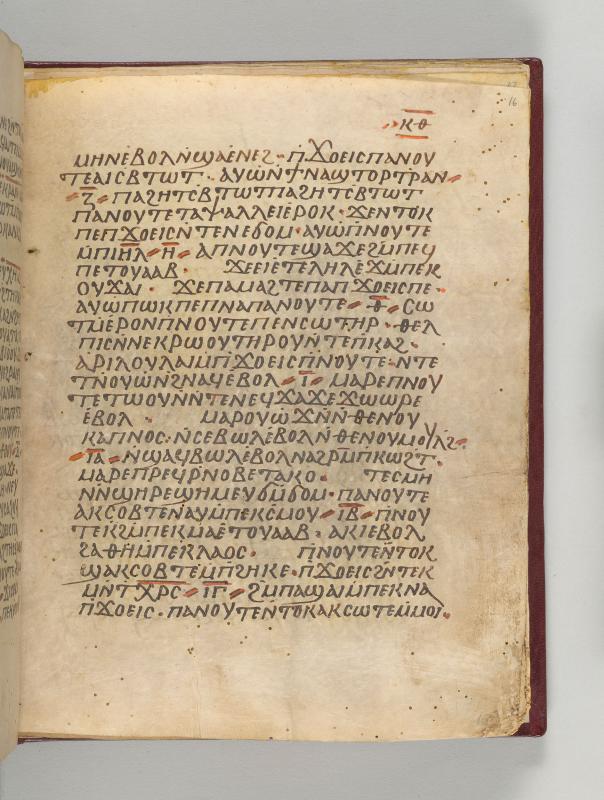 ⲕⲑ
ⲙⲏⲛⲉⲃⲟⲗⲛϣⲁⲉⲛⲉϩ · ⲡϫⲟⲉⲓⲥⲡⲁⲛⲟⲩ
ⲧⲉⲁⲓⲥⲃⲧⲱⲧ · ⲁⲩⲱⲛϯⲛⲁϣⲧⲟⲣⲧⲣⲁⲛ
ⲍ ⲡⲁϩⲏⲧⲥⲃⲧⲱⲧⲡⲁϩⲏⲧⲥⲃⲧⲱⲧ
ⲡⲁⲛⲟⲩⲧⲉⲧⲁⲯⲁⲗⲗⲉⲓⲉⲣⲟⲕ · ϫⲉⲛⲧⲟⲕ
ⲡⲉⲡϫⲟⲉⲓⲥⲛⲧⲉⲛⲉϭⲟⲙ · ⲁⲩⲱⲡⲛⲟⲩⲧⲉ
ⲙⲡⲓⲏⲗ ⲏ · ⲁⲡⲛⲟⲩⲧⲉϣⲁϫⲉϩⲙⲡⲉϥ
ⲡⲉⲧⲟⲩⲁⲁⲃ · ϫⲉⲉⲓⲉⲧⲉⲗⲏⲗⲉϫⲙⲡⲉⲕ
ⲟⲩϫⲁⲓ · ϫⲉⲡⲁⲙⲁϩⲧⲉⲡⲁⲡϫⲟⲉⲓⲥⲡⲉ ·
ⲁⲩⲱⲡⲱⲕⲡⲉⲡⲛⲁⲡⲁⲛⲟⲩⲧⲉ ⲑ · ⲥⲱ
ⲧⲙⲉⲣⲟⲛⲡⲛⲟⲩⲧⲉⲡⲉⲛⲥⲱⲧⲏⲣ · ⲑⲉⲗ
ⲡⲓⲥⲛⲛⲉⲕⲣⲱⲟⲩⲧⲏⲣⲟⲩⲛⲧⲉⲡⲕⲁϩ ·
ⲁⲣⲓⲗⲟⲩⲗⲁⲓⲙⲡϫⲟⲉⲓⲥⲡⲛⲟⲩⲧⲉ · ⲛⲧⲉ
ⲧⲛⲟⲩⲱⲛϩⲛⲁϥⲉⲃⲟⲗ ⲓ · ⲙⲁⲣⲉⲡⲛⲟⲩ
ⲧⲉⲧⲱⲟⲩⲛⲛⲧⲉⲛⲉϥϫⲁϫⲉϫⲱⲱⲣⲉ
ⲉⲃⲟⲗ · ⲙⲁⲣⲟⲩⲱϫⲛⲛⲑⲉⲛⲟⲩ
ⲕⲁⲡⲛⲟⲥ · ⲛⲥⲉⲃⲱⲗⲉⲃⲟⲗⲛⲑⲉⲛⲟⲩⲙⲟⲩⲗϩ
ⲓⲁ · ⲛϣⲁϥⲃⲱⲗⲉⲃⲟⲗⲛⲁϩⲣⲙⲡⲕⲱϩⲧ ·
ⲙⲁⲣⲉⲡⲣⲉϥⲣⲛⲟⲃⲉⲧⲁⲕⲟ · ⲧⲉⲥⲙⲏ
ⲛⲛϣⲏⲣⲉϣⲏⲙⲉⲩϭⲙϭⲟⲙ · ⲡⲁⲛⲟⲩⲧⲉ
ⲁⲕⲥⲟⲃⲧⲉⲛⲁⲩⲙⲡⲉⲕⲥⲙⲟⲩ ⲓⲃ · ⲡⲛⲟⲩ
ⲧⲉⲕϩⲙⲡⲉⲕⲙⲁⲉⲧⲟⲩⲁⲁⲃ · ⲁⲕⲓⲉⲃⲟⲗ
ϩⲁⲑⲏⲙⲡⲉⲕⲗⲁⲟⲥ · ⲡⲛⲟⲩⲧⲉⲛⲧⲟⲕ
ϣⲁⲕⲥⲟⲃⲧⲉⲙⲡϩⲏⲕⲉ · ⲡϫⲟⲉⲓⲥϩⲛⲧⲉⲕ
ⲙⲛⲧⲭⲣⲥ ⲓⲅ · ϩⲙⲡⲁϣⲁⲓⲙⲡⲉⲕⲛⲁ
ⲡϫⲟⲉⲓⲥ · ⲡⲁⲛⲟⲩⲧⲉⲛⲧⲟⲕⲁⲕⲥⲱⲧⲉⲙⲙⲟⲓ ·